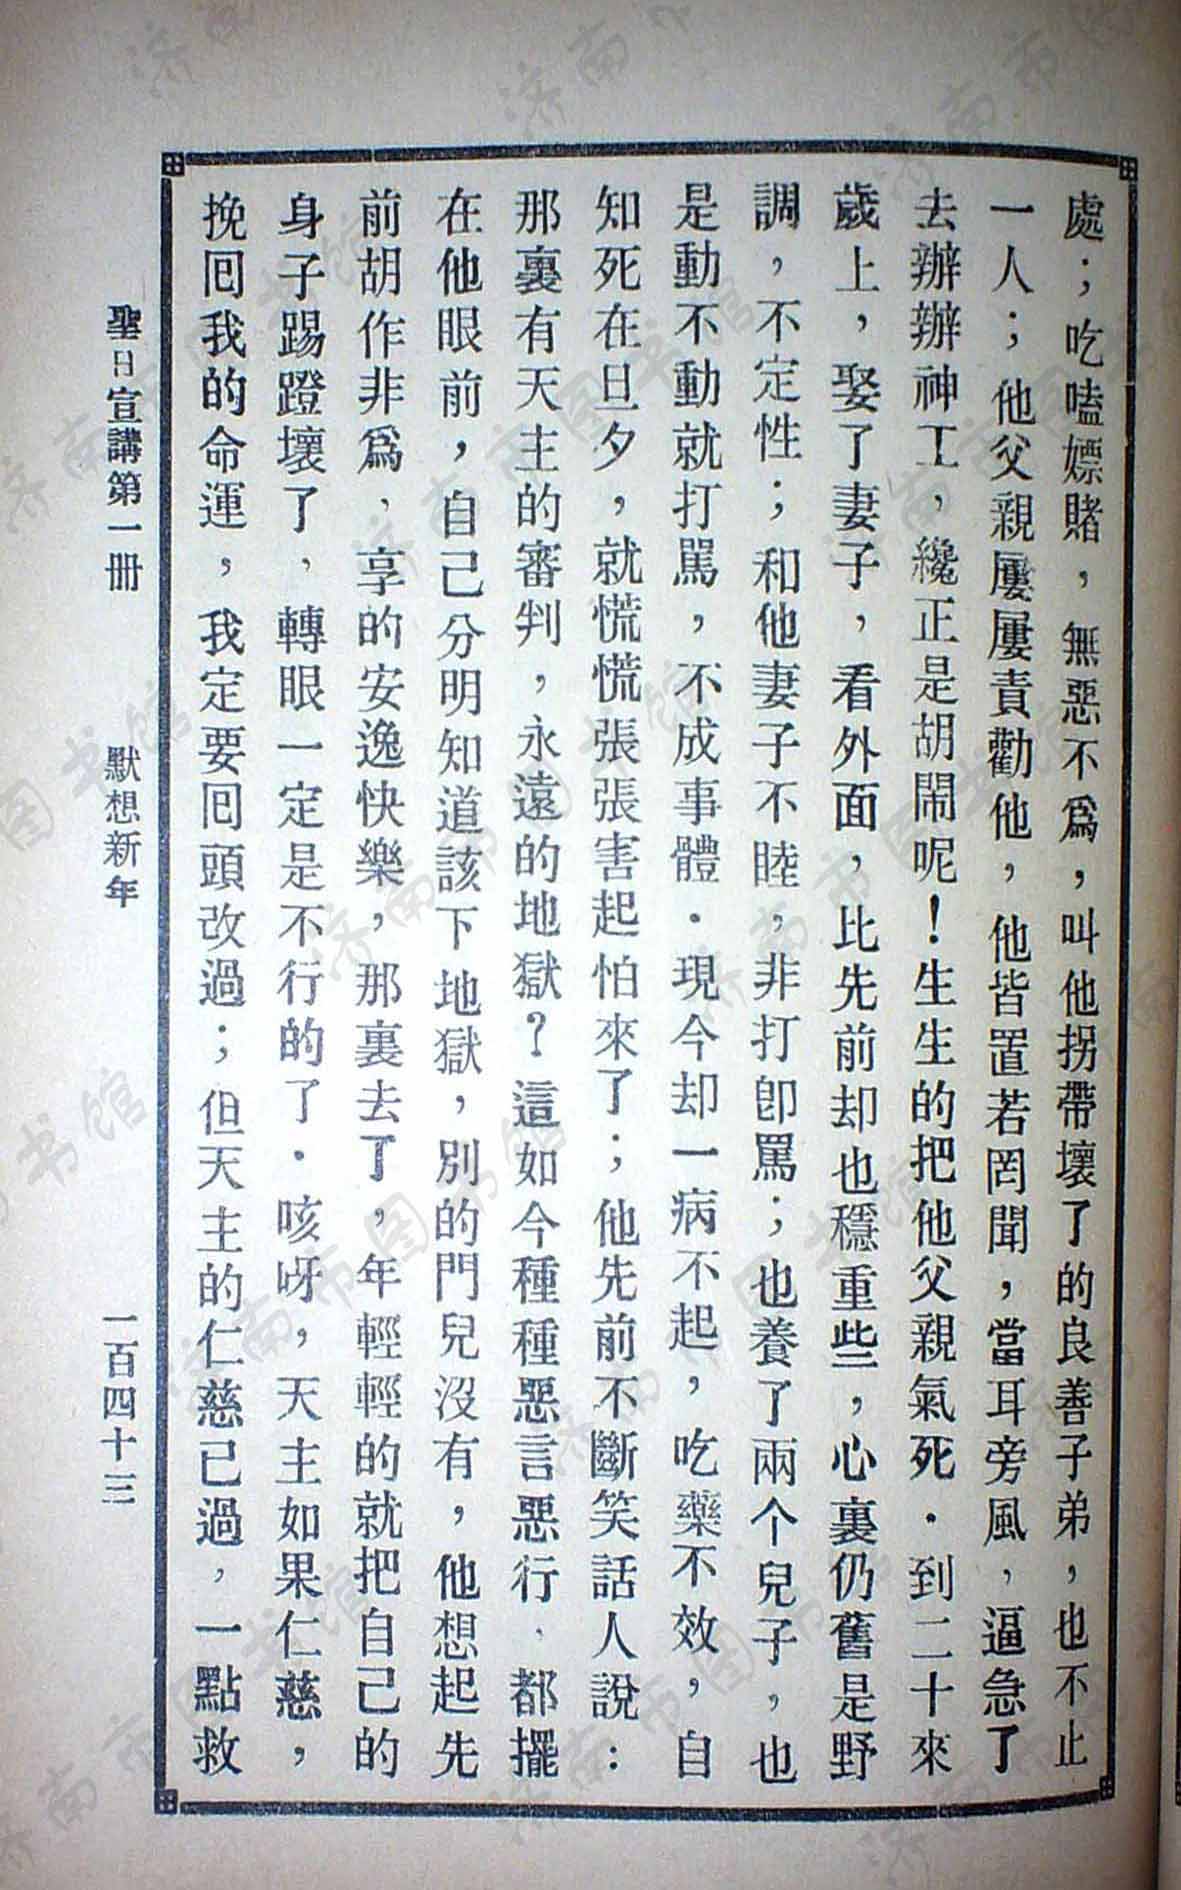 處；吃嗑嫖賭，無惡不爲，叫他拐帶壞了的良善子弟，也不止
一人；他父親屢屢責勸他，他皆置若罔聞，當耳旁風，逼急了
去辦辦神工，纔正是胡鬧呢！生生的把他父親氣死．到二十來
歲上，娶了妻子，看外面，比先前却也穩重些，心裏仍舊是野
調，不定性；和他妻子不睦，非打卽罵；也養了兩个兒子，也
是動不動就打罵，不成事體．現今却一病不起，吃藥不效，自
知死在旦夕，就慌慌張張害起怕來了；他先前不斷笑話人說：
那裏有天主的審判，永遠的地獄？這如今種種惡言惡行，都擺
在他眼前，自己分明知道該下地獄，別的門兒沒有，他想起先
前胡作非爲，享的安逸快樂，那裏去了，年輕輕的就把自己的
身子踢蹬壞了，轉眼一定是不行的了．咳呀，天主如果仁慈，
挽囘我的命運，我定要囘頭改過；但天主的仁慈已過，一點救
聖日宣講第一册　默想新年　一百四十三
濟南市图书馆